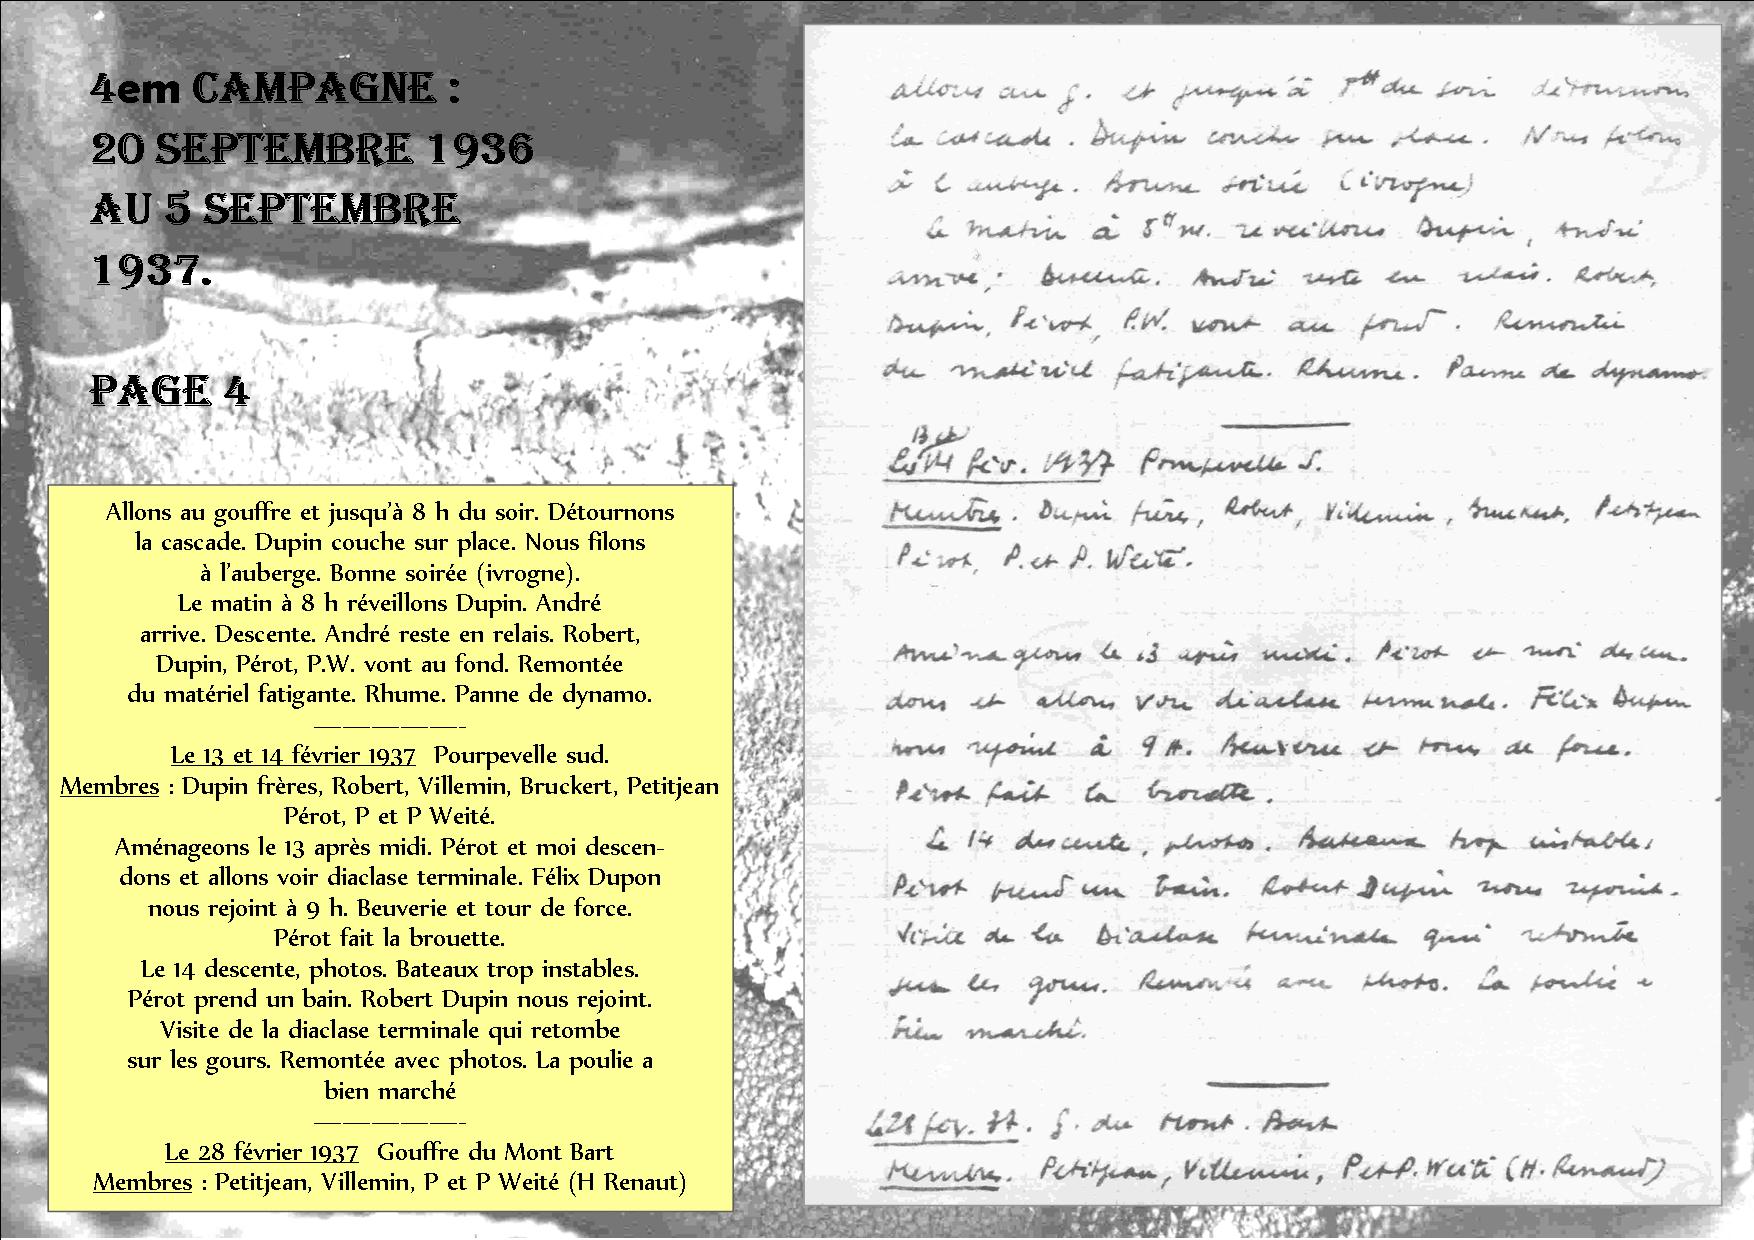 4em CAMPAGNE :
20 SEPTEMBRE 1936
AU 5 SEPTEMBRE
1937.
PAGE 4
Allons au gouffre et jusqu'à 8 h du soir. Détournons
la cascade. Dupin couche sur place. Nous filons
à l'auberge. Bonne soirée (ivrogne).
Le matin à 8 h réveillons Dupin. André
arrive. Descente. André reste en relais. Robert,
Dupin, Pérot, P.W. vont au fond. Remontée
du matériel fatigante. Rhume. Panne de dynamo.
Le 13 et 14 février 1937 Pourpevelle sud.
Membres : Dupin frères, Robert, Villemin, Bruckert, Petitjean
Pérot, P et P Weité.
Aménageons le 13 après midi. Pérot et moi descen-
dons et allons voir diaclase terminale. Félix Dupon
nous rejoint à 9 h. Beuverie et tour de force.
Pérot fait la brouette.
Le 14 descente, photos. Bateaux trop instables.
Pérot prend un bain. Robert Dupin nous rejoint.
Visite de la diaclase terminale qui retombe
sur les gours. Remontée avec photos. La poulie a
bien marché
Le 28 février 1937 Gouffre du Mont Bart
Membres : Petitjean, Villemin, P et P Weité (H Renaut)
allons au g. et jusqu'à 8H du soir détournons
la cascade. Dupin couche sur place. Nous filons
à l'auberge. Bonne soirée (ivrogne)
Le matin à 8H m. réveillons Dupin, André
arrive; Descente. André reste en relais. Robert,
Dupin, Pérot, P.W. vont au fond. Remontée
du matériel fatigante. Rhume. Panne de dynamo.
13 et
Les 14 fév. 1937 Pourpevelle S.
Membres. Dupin frères, Robert, Villemin, Bruckert, Petitjean
Pérot, P. et P. Weité.
Aménageons le 13 après midi. Pérot et moi descen-
dons et allons voir diaclase terminale. Félix Dupin
nous rejoint à 9H. Beuverie et tours de force.
Pérot fait la brouette.
Le 14 descente, photos. Bateaux trop instables
Pérot prend un bain. Robert Dupin nous rejoint.
Visite de la Diaclase terminale qui retombe
sur les gours. Remontée avec photo. La poulie a
bien marché.
Le 28 fév. 37. g. du Mont. Bart
Membres. Petitjean, Villemin, P et P. Weité (H. Renaud)